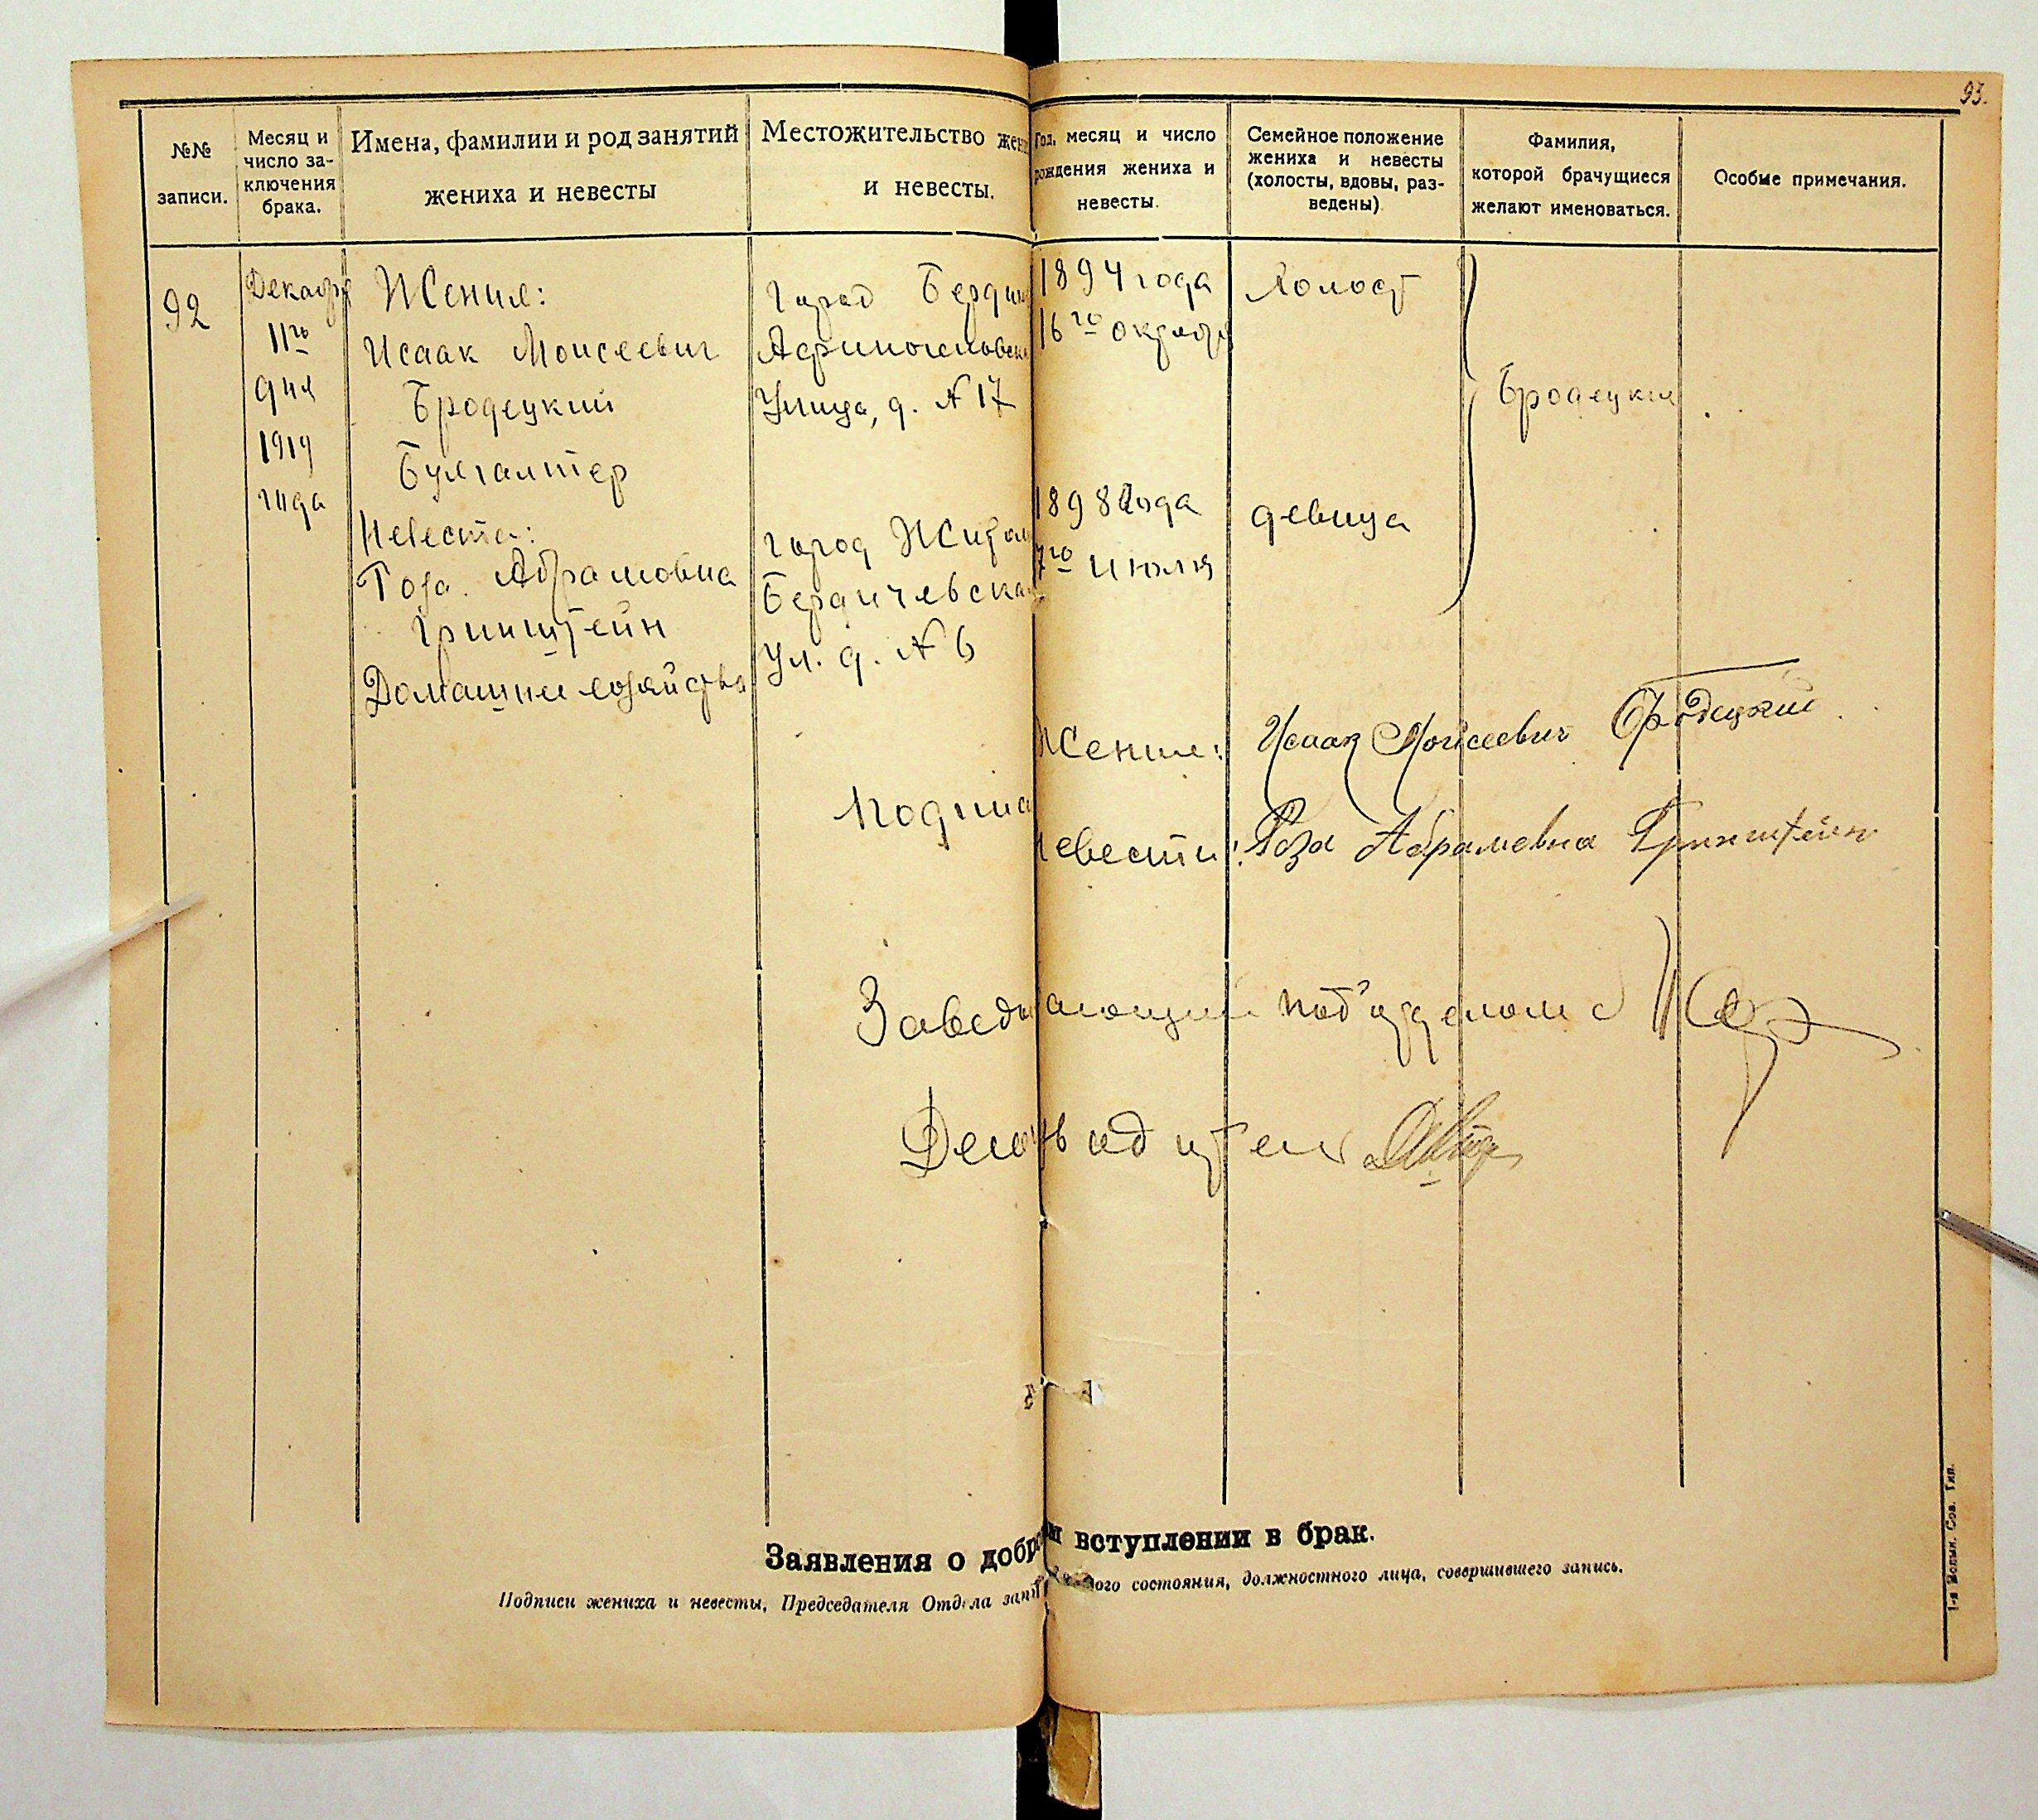 93.
№№
записи.
Месяц и
число за-
ключения
брака.
Имена, фамилии и род занятий
жениха и невесты
Местожительство жени
и невесты.
Год, месяц и число
рождения жениха и
невесты.
Семейное положение
жениха и невесты
(холосты, вдовы, раз-
ведены)
Фамилия,
которой брачущиеся
желают именоваться.
Особые примечания.
92
Декабря
11го
дня
1919
года
Жених:
Исаак Моисеевич
Бродецкий
Бухгалтер
Невеста:
Роза Абрамовна
Гринштейн
Домашнее хозяйство
Город Бердич
Улица, д. № 17
город Житом
Бердичевская
Ул. д. № 6
1894 года
16го октября
1898 года
7го июля
Холост
девица
Бродецкий
Жених: Исаак Мойсеевич Бродецкий
Подписи
Невесты: Роза Абрамовна Гринштейн
Заведывающий подотделом
Делопроизводитель
Заявления о добро м вступлении в брак.
Подписи жениха и невесты, Председателя Отдела запи ского состояния, должностного лица, совершившего запись.
1-я Волын. Сов. Тип.